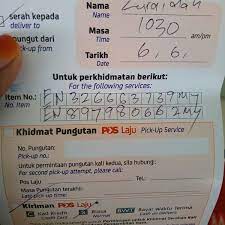 serah kepada
deliver to
pungut dari
pick-up from
Nama
Name
Masa
Time
1030
am/pm
Tarikh
Date
6, 6,
Untuk perkhidmatan berikut:
For the following services:
Item No.:
No. Item
EN326663739MY
EN897980662MY
Khidmat Pungutan POS Laju Pick-Up Service
No. Pungutan:
Pick-up no.:
Untuk permintaan pungutan kali kedua, sila hubungi:
For second pick-up attempt, please call:
Pos Laju
Tel.:
Masa Pungutan terakhir:
Last pick-up time:
Kiriman POS Laju
C Kad Kredit
Credit Card
Biasa
Normal
Bayar Waktu Terima
Cash on Delivery